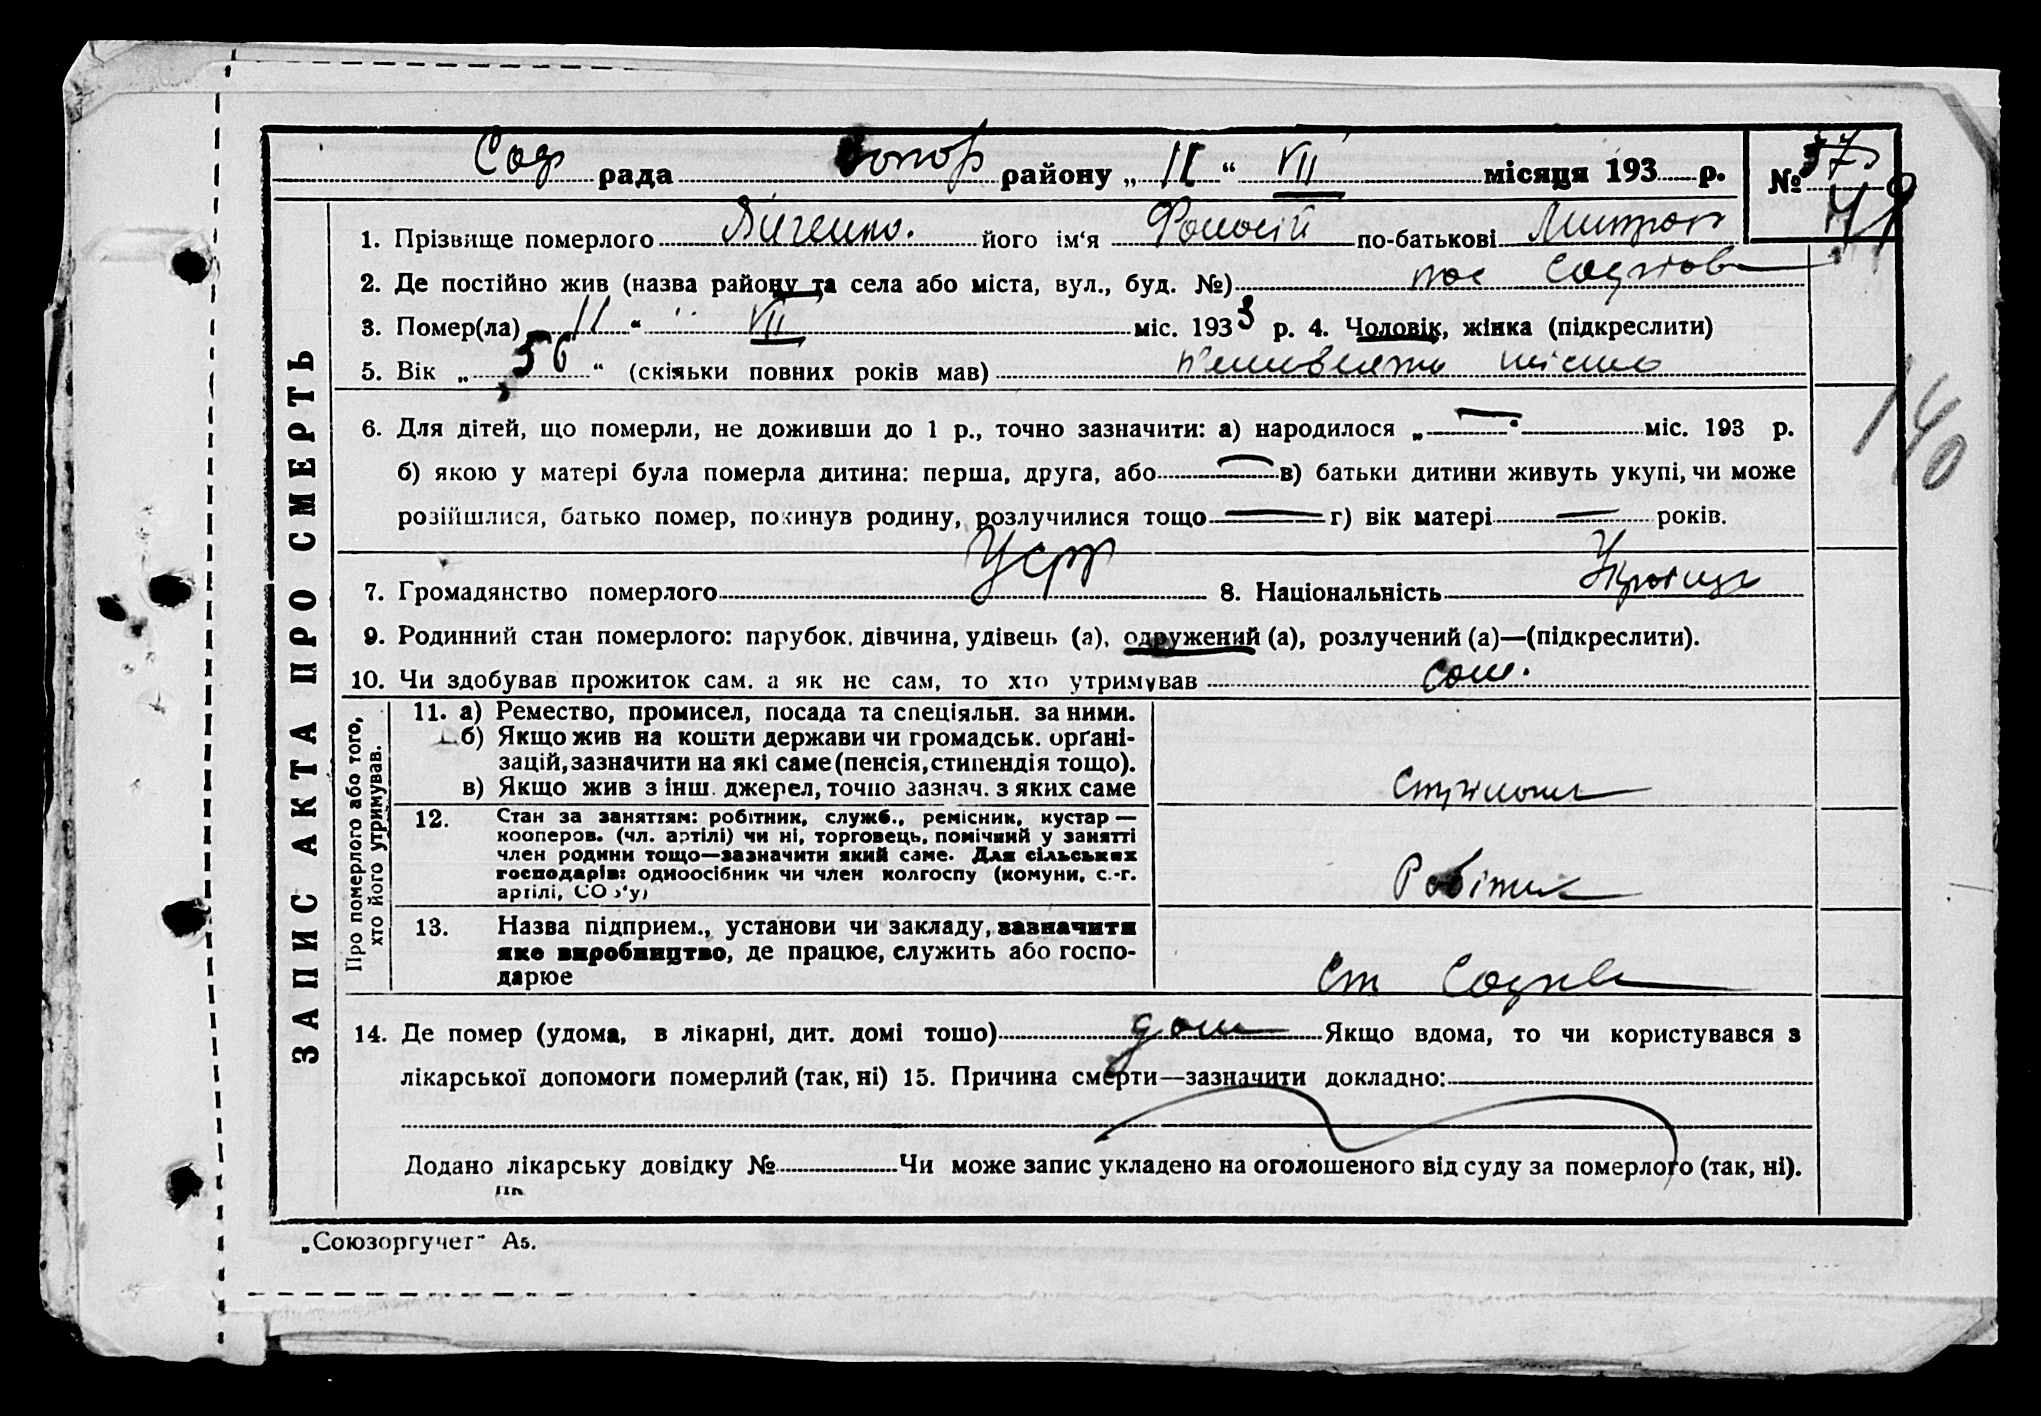 Сад рада Запор району „ 11 “ VII місяця 193 р. №
1. Прізвище померлого його ім‘я по-батькові Митроф
2. Де постійно жив (назва району та села або міста, вул., буд. №) пос
3. Помер(ла) 11 “ VII міс. 1933 р. 4. Чоловік, жінка (підкреслити)
5. Вік „ 56 “ (скільки повних років мав)
6. Для дітей, що померли, не доживши до 1 р., точно зазначити: а) народилося „ — “ міс. 193 р.
б) якою у матері була померла дитина: перша, друга, або — в) батьки дитини живуть укупі, чи може
розійшлися, батько помер, покинув родину, розлучилися тощо — г) вік матері — років.
7. Громадянство померлого УСРР 8. Національність Українць
9. Родинний стан померлого: парубок, дівчина, удівець (а), одружений (а), розлучений (а)—(підкреслити).
10. Чи здобував прожиток сам, а як не сам, то хто утримував сам.
ЗАПИС АКТА ПРО СМЕРТЬ
Про померлого або того, хто його утримував.
11. а) Ремество, промисел, посада та спеціяльн. за ними.
б) Якщо жив на кошти держави чи громадськ. орґані-
зацій, зазначити на які саме (пенсія, стипендія тощо).
в) Якщо жив з інш. джерел, точно зазнач. з яких саме
12. Стан за заняттям: робітник, служб., ремісник, кустар —
кооперов. (чл. артілі) чи ні, торговець, помічний у занятті
член родини тощо—зазначити який саме. Для сільських
господарів: одноосібник чи член колгоспу (комуни, с.-г.
артілі, СОЗ‘у)
Робітник
13. Назва підприєм., установи чи закладу, зазначити
яке виробництво, де працює, служить або госпо-
дарює
Ст
14. Де помер (удома, в лікарні, дит. домі тошо) дома Якщо вдома, то чи користувався з
лікарської допомоги померлий (так, ні) 15. Причина смерти—зазначити докладно:
Додано лікарську довідку № Чи може запис укладено на оголошеного від суду за померлого (так, ні).
„Союзоргучет“ А5.
140